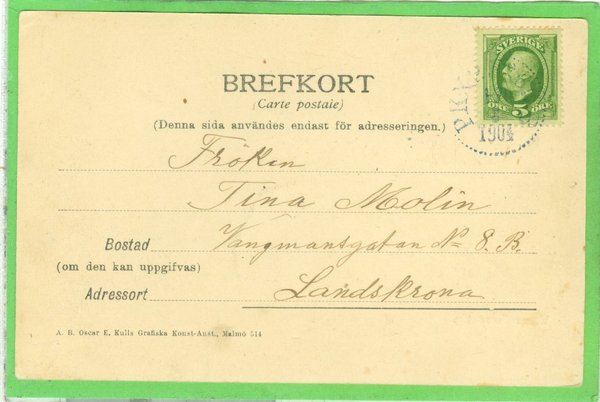 SVERIGE
ÖRE 5 ÖRE
PKX
1904
BREFKORT
(Carte postale)
(Denna sida användes endast för adresseringen.)
Fröken
Tina Molin
Bostad Vangmansgatan No 8. B.
(om den kan uppgifvas)
Adressort Landskrona
A. B. Oscar E. Kulls Grafiska Konst-Anst., Malmö 514